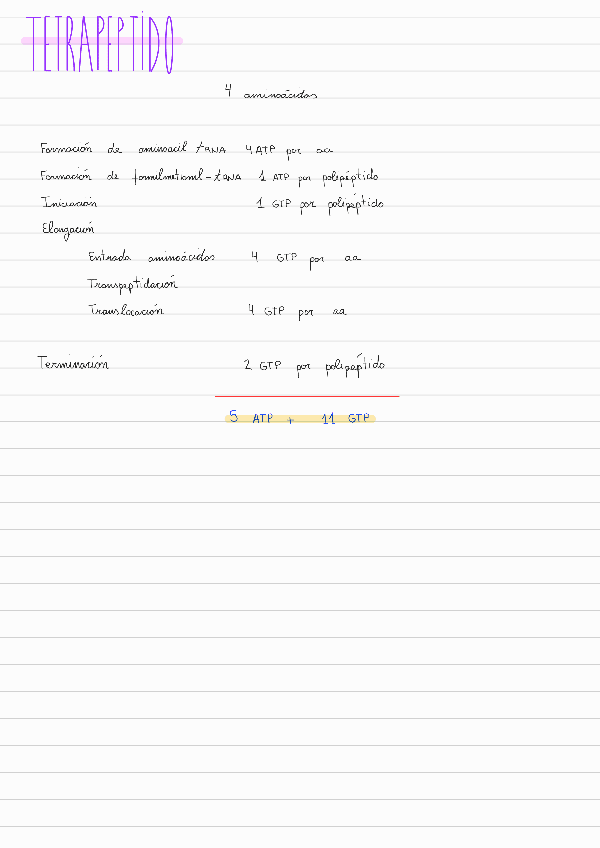 TETRAPEPTIDO
4 aminoácidos
Formación de aminoacil tRNA 4 ATP por aa
Formación de formilmetionil-tRNA 1 ATP por polipéptido
Iniciación 1 GTP por polipéptido
Elongación
Entrada aminoácidos 4 GTP por aa
Transpeptidación
Translocación 4 GTP por aa
Terminación 2 GTP por polipéptido
5 ATP + 11 GTP